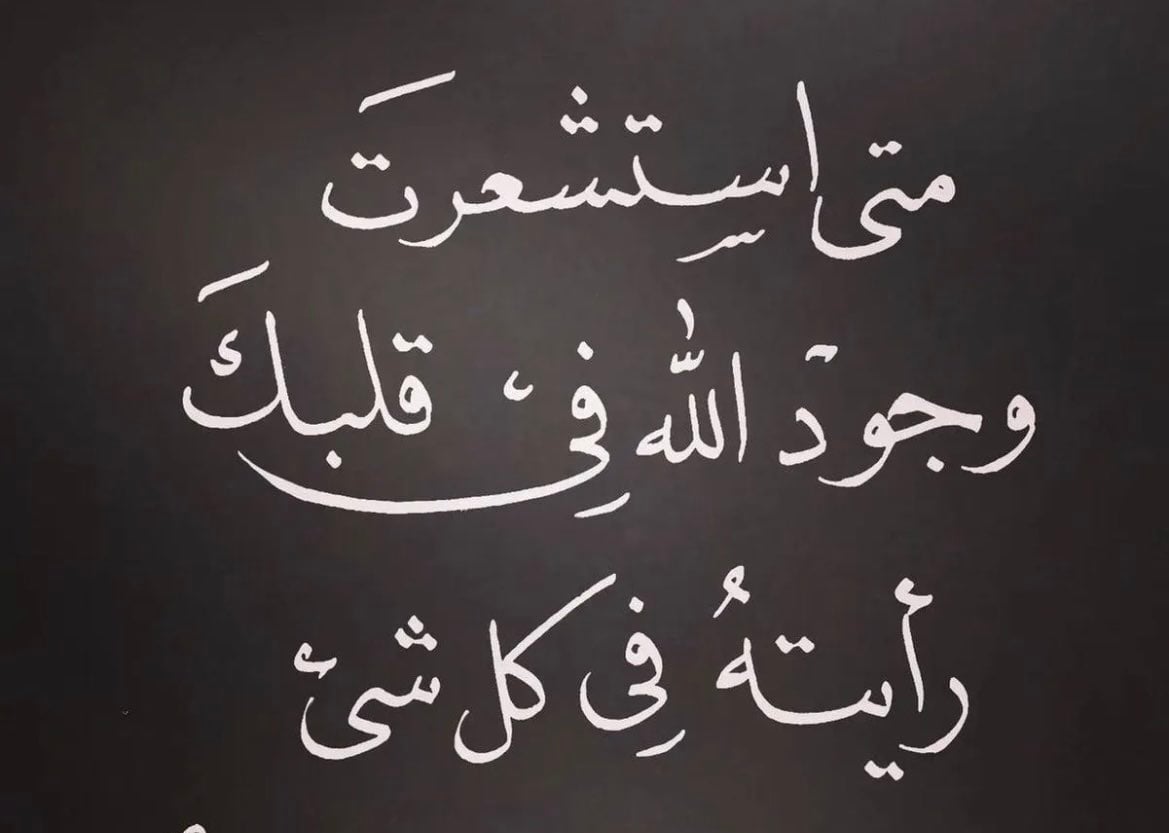 متى اسِتشعرتَ
وجودْ الله فِي قلبكَ
رأيتهُ فِي كل شئ